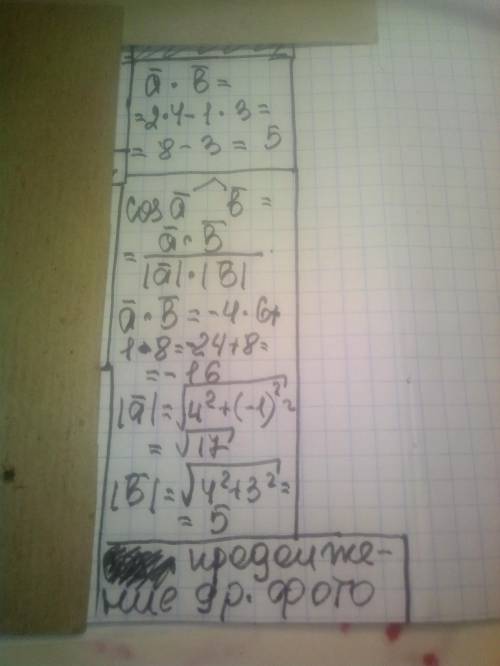 ā · b̄ =
= 2·4 - 1 · 3 =
= 8 - 3 = 5
cos ā ^ b̄ =
= ā · b̄ / |ā| · |b̄|
ā · b̄ = -4 · 6 +
1 · 8 = -24 + 8 =
= -16
|ā| = √4² + (-1)² =
= √17
|b̄| = √4² + 3² =
= 5
продолже-
ние др. фото